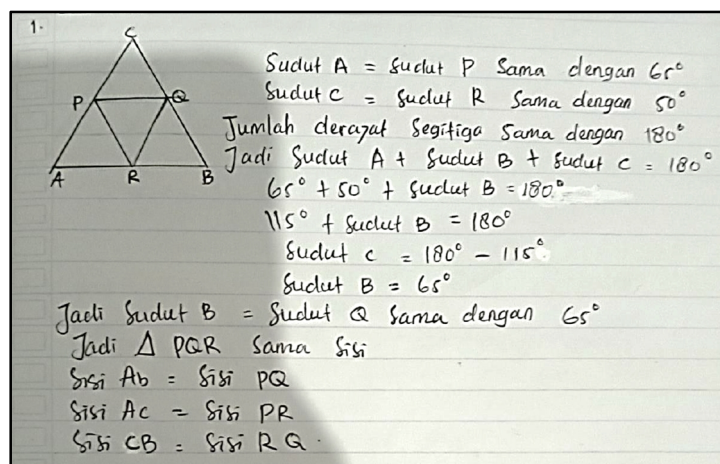 1.
C
P
Q
A
R
B
Sudut A = Sudut P Sama dengan 65°
Sudut C = Sudut R Sama dengan 50°
Jumlah derajat Segitiga Sama dengan 180°
Jadi Sudut A + Sudut B + Sudut C = 180°
65° + 50° + Sudut B = 180°
115° + Sudut B = 180°
Sudut C = 180° - 115°
Sudut B = 65°
Jadi Sudut B = Sudut Q Sama dengan 65°
Jadi Δ PQR Sama Sisi
Sisi Ab = Sisi PQ
Sisi AC = Sisi PR
Sisi CB = Sisi RQ.